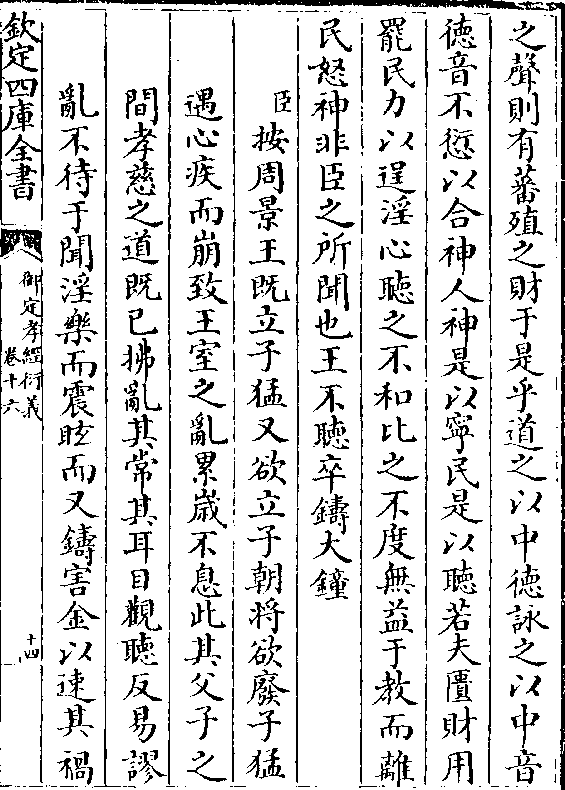 之聲則有蕃殖之財于是乎道之以中德詠之以中音
德音不愆以合神人神是以寧民是以聽若夫匱財用
罷民力以逞淫心聽之不和比之不度無益于教而離
民怒神非臣之所聞也王不聽卒鑄大鐘
臣按周景王既立子猛又欲立子朝将欲廢子猛
遇心疾而崩致王室之亂累歲不息此其父子之
間孝慈之道既已拂亂其常其耳目觀聽反易謬
亂不待于聞淫樂而震眩而又鑄害金以速其禍
欽定四庫全書
御定孝經衍義
卷十六
十四